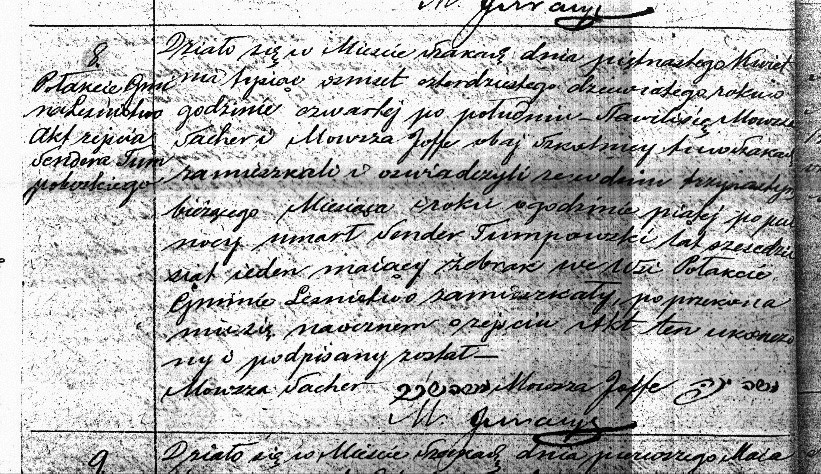 8
Potarcie Gmi
na Leśnictwo
Akt zejścia
Sendera Tum
powskiego
Działo się w Mieście dnia piętnastego Kwiet
nia tysiąc osmset czterdziestego dziewiątego roku o
godzinie czwartej po południu. Stawili się Mowsza
Sacher i Mowsza Joffe obaj Szkolnicy tu w
zamieszkali i oświadczyli że w dniu trzynastym
bieżącego Miesiąca i roku o godzinie piątej po pół
nocy umarł Sender Tumpowski lat sześćdzie
siąt ieden maiący żebrak we Wsi Potarcie
Gminie Leśnictwo zamieszkały, po przekona
niu się naocznem o zejściu Akt ten ukończo
ny i podpisany został—
Mowsza Sacher משה Mowsza Joffe משה יפה
M.
9
Działo się w Mieście dnia pierwszego Maia